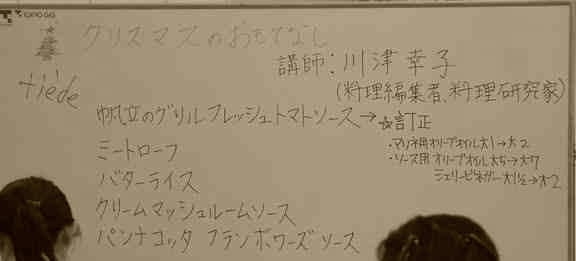 TOKYO GAS
クリスマスのおもてなし
講師：川津幸子
(料理編集者、料理研究家)
tiède
帆立のグリルフレッシュトマトソース→☆訂正
・マリネ用オリーブオイル大1→大2
・ソース用 オリーブオイル大5→大7
シェリービネガー大1½→大2
ミートローフ
バターライス
クリームマッシュルームソース
パンナコッタ フランボワーズソース